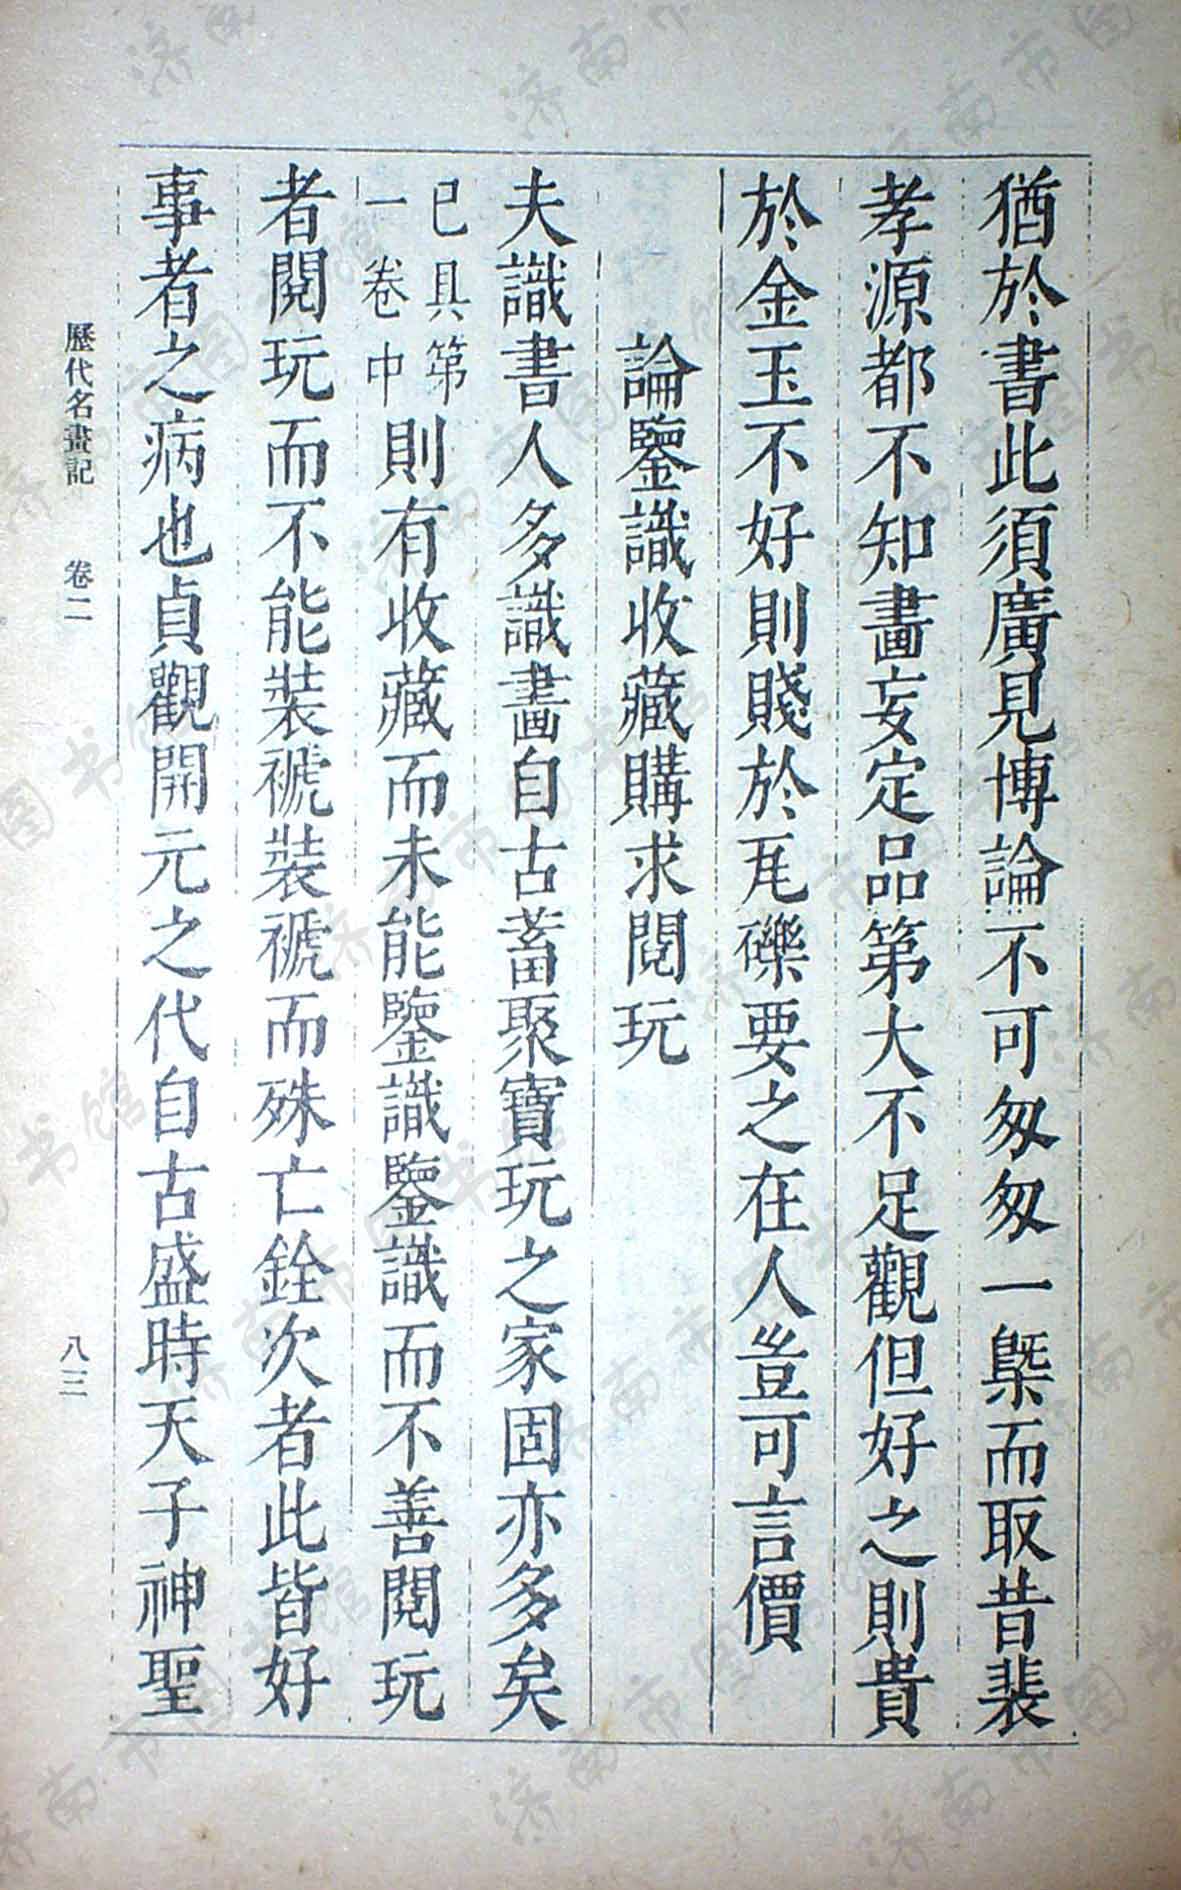 猶於書此須廣見博論不可匆匆一槩而取昔裴
孝源都不知畫妄定品第大不足觀但好之則貴
於金玉不好則賤於瓦礫要之在人豈可言價
論鑒識收藏購求閱玩
夫識書人多識畫自古蓄聚寶玩之家固亦多矣
已具第
一卷中
則有收藏而未能鑒識鑒識而不善閱玩
者閱玩而不能裝褫裝褫而殊亡銓次者此皆好
事者之病也貞觀開元之代自古盛時天子神聖
歷代名畫記 卷二 八三
济南市图书馆